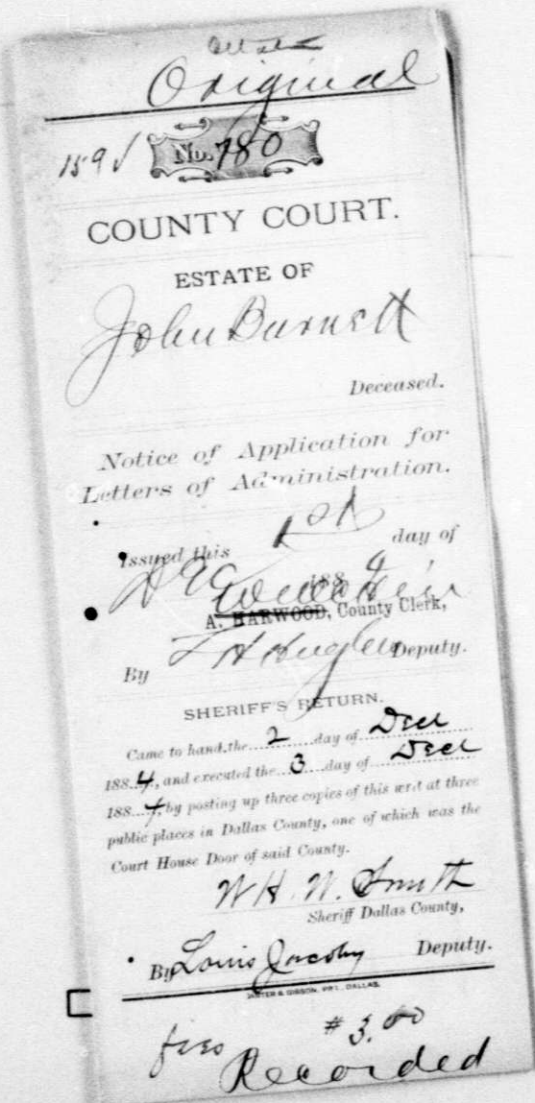 Original
159 No. 780
COUNTY COURT.
ESTATE OF
John Burnett
Deceased.
Notice of Application for
Letters of Administration.
Issued this 1st day of
Dec 188
A. HARWOOD, County Clerk,
By Deputy.
SHERIFF'S RETURN.
Came to hand, the 2 day of Decr
1884, and executed the 3 day of Decr
1884, by posting up three copies of this writ at three
public places in Dallas County, one of which was the
Court House Door of said County.
W. H. W. Smith
Sheriff Dallas County,
By Louis Jacoby Deputy.
GIBSON, PR'T., DALLAS.
fees $3.00
Recorded